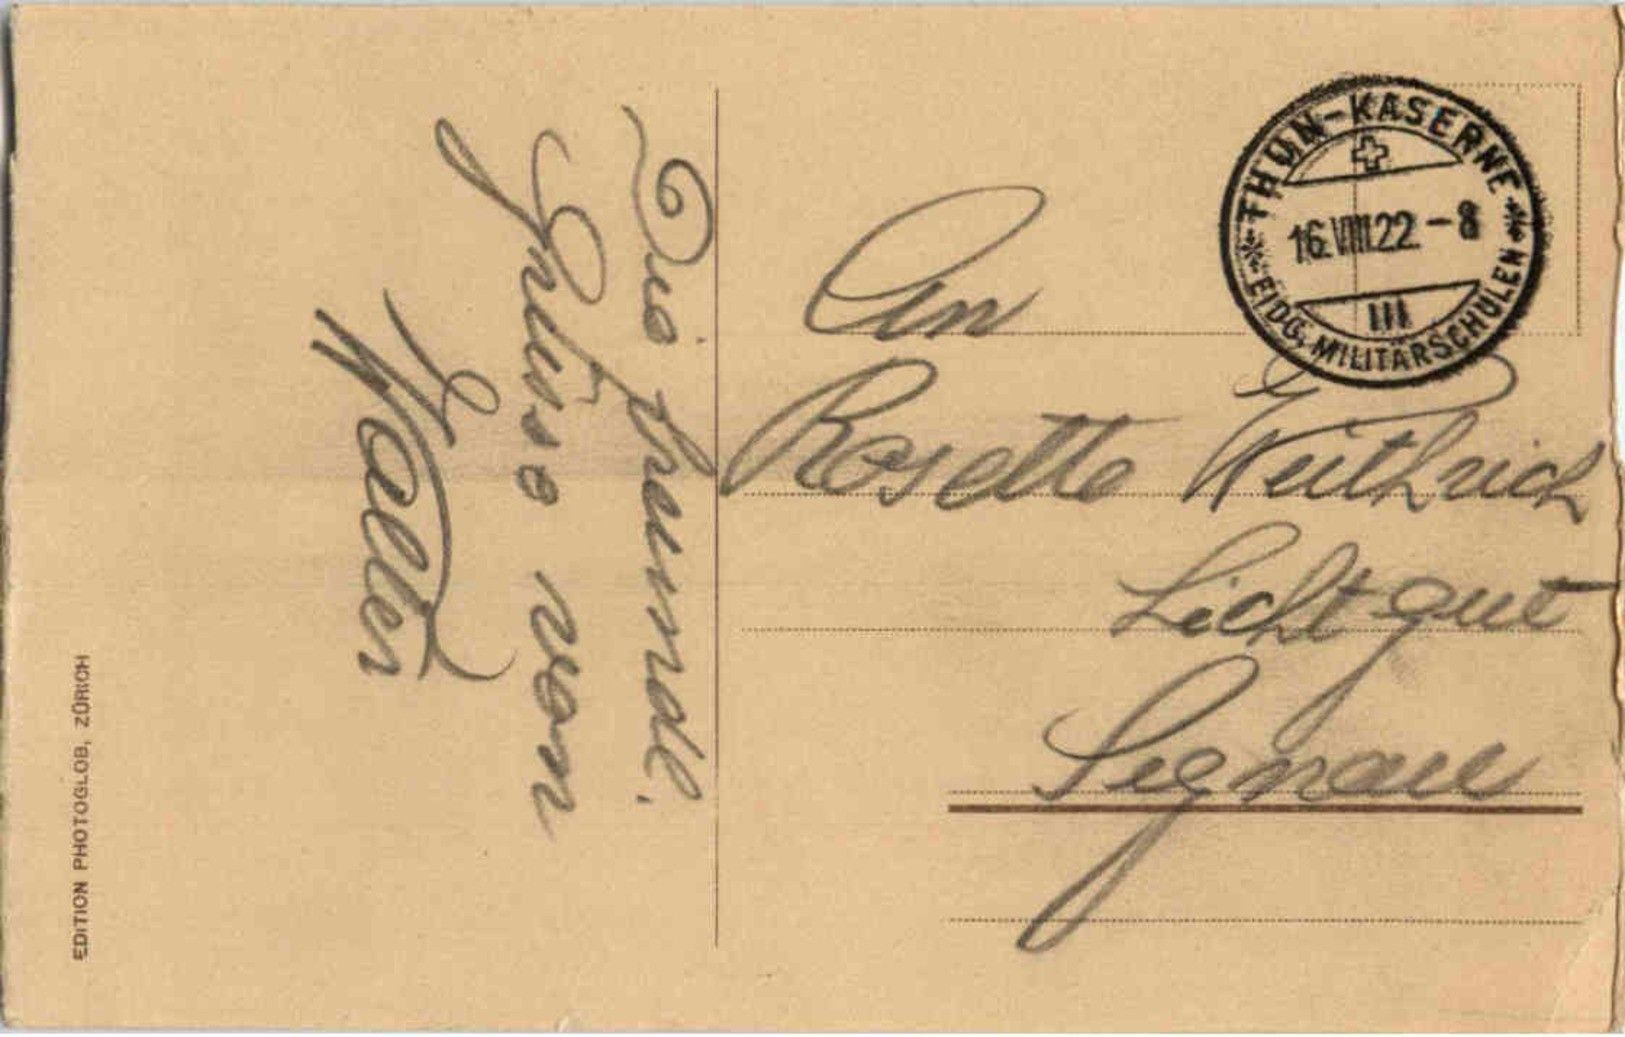 Die freundl.
Grüsse von
Walter
THUN-KASERNE
16.VIII.22.-8
III
EIDG. MILITÄRSCHULEN
An
Rosette
Lichtgut
Signau
EDITION PHOTOGLOB, ZÜRICH